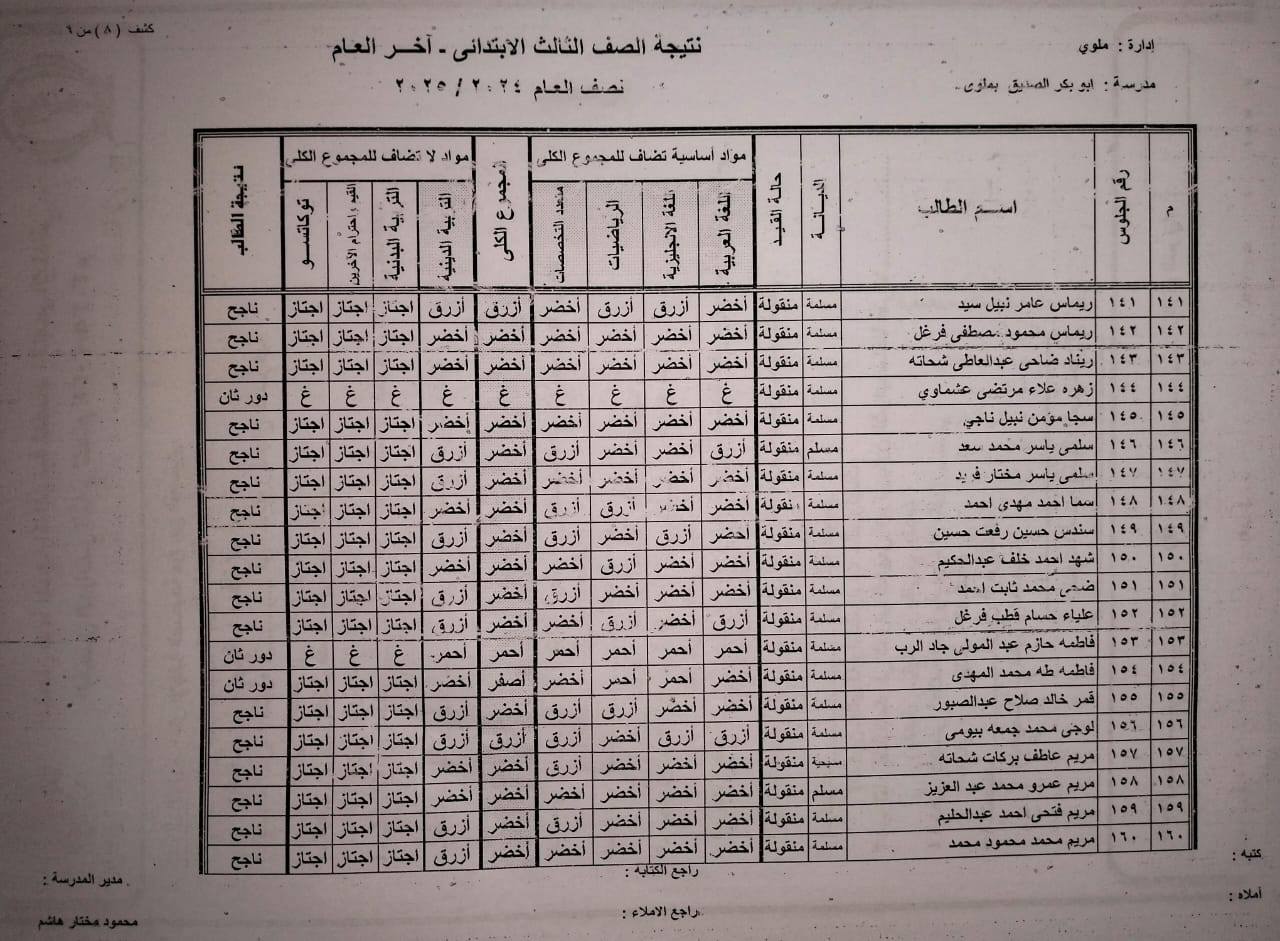 كشف (٨) من ٩
إدارة : ملوي
نتيجة الصف الثالث الابتدائى - آخر العام
مدرسة : ابو بكر الصديق بملوى
نصف العام ٢٠٢٤ / ٢٠٢٥
م رقم الجلوس اسم الطالب الديانة حالة القيد مواد أساسية تضاف للمجموع الكلى المجموع الكلى مواد لا تضاف للمجموع الكلى نتيجة الطالب
اللغة العربية اللغة الانجليزية الرياضيات متعدد التخصصات التربية الدينية التربية البدنية القيم واحترام الآخرين توكاتسو
١٤١ ١٤١ ريماس عامر نبيل سيد مسلمة منقولة أخضر أزرق أزرق أخضر أزرق أزرق اجتاز اجتاز اجتاز ناجح
١٤٢ ١٤٢ ريماس محمود مصطفى فرغل مسلمة منقولة أخضر أخضر أخضر أخضر أخضر أخضر اجتاز اجتاز اجتاز ناجح
١٤٣ ١٤٣ ريناد ضاحى عبدالعاطى شحاته مسلمة منقولة أخضر أخضر أخضر أخضر أخضر أخضر اجتاز اجتاز اجتاز ناجح
١٤٤ ١٤٤ زهره علاء مرتضى عشماوي مسلمة منقولة غ غ غ غ غ غ غ غ غ دور ثان
١٤٥ ١٤٥ سجا مؤمن نبيل ناجي مسلمة منقولة أخضر أخضر أخضر أخضر أخضر أخضر اجتاز اجتاز اجتاز ناجح
١٤٦ ١٤٦ سلمى ياسر محمد سعد مسلم منقولة أزرق أخضر أزرق أزرق أخضر أزرق اجتاز اجتاز اجتاز ناجح
١٤٧ ١٤٧ سلمى ياسر مختار فريد مسلمة منقولة أخضر أخضر أخضر أخضر أخضر أزرق اجتاز اجتاز اجتاز ناجح
١٤٨ ١٤٨ سما احمد مهدى احمد مسلمة منقولة أخضر أخضر أزرق أزرق أخضر أخضر اجتاز اجتاز اجتاز ناجح
١٤٩ ١٤٩ سندس حسين رفعت حسين مسلمة منقولة أخضر أزرق أخضر أزرق أخضر أزرق اجتاز اجتاز اجتاز ناجح
١٥٠ ١٥٠ شهد احمد خلف عبدالحكيم مسلمة منقولة أخضر أخضر أزرق أخضر أخضر أخضر اجتاز اجتاز اجتاز ناجح
١٥١ ١٥١ ضحى محمد ثابت احمد مسلمة منقولة أخضر أخضر أخضر أزرق أخضر أزرق اجتاز اجتاز اجتاز ناجح
١٥٢ ١٥٢ علياء حسام قطب فرغل مسلمة منقولة أزرق أخضر أزرق أخضر أخضر أزرق اجتاز اجتاز اجتاز ناجح
١٥٣ ١٥٣ فاطمه حازم عبد المولى جاد الرب مسلمة منقولة أحمر أحمر أحمر أحمر أحمر أحمر غ غ غ دور ثان
١٥٤ ١٥٤ فاطمه طه محمد المهدى مسلمة منقولة أخضر أحمر أحمر أخضر أصفر أخضر اجتاز اجتاز اجتاز دور ثان
١٥٥ ١٥٥ قمر خالد صلاح عبدالصبور مسلمة منقولة أخضر أخضر أزرق أزرق أخضر أزرق اجتاز اجتاز اجتاز ناجح
١٥٦ ١٥٦ لوجى محمد جمعه بيومى مسلمة منقولة أزرق أزرق أخضر أزرق أزرق أزرق اجتاز اجتاز اجتاز ناجح
١٥٧ ١٥٧ مريم عاطف بركات شحاته مسيحية منقولة أخضر أخضر أخضر أزرق أخضر أخضر اجتاز اجتاز اجتاز ناجح
١٥٨ ١٥٨ مريم عمرو محمد عبد العزيز مسلم منقولة أخضر أخضر أخضر أخضر أخضر أخضر اجتاز اجتاز اجتاز ناجح
١٥٩ ١٥٩ مريم فتحى احمد عبدالحليم مسلمة منقولة أخضر أخضر أخضر أزرق أخضر أزرق اجتاز اجتاز اجتاز ناجح
١٦٠ ١٦٠ مريم محمد محمود محمد مسلمة منقولة أخضر أخضر أخضر أخضر أخضر أزرق اجتاز اجتاز اجتاز ناجح
كتبه :
راجع الكتابه :
مدير المدرسة :
أملاه :
راجع الاملاء :
محمود مختار هاشم